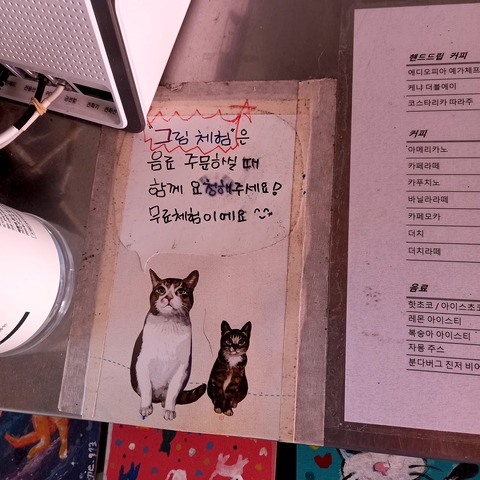 "그림 체험"은
음료 주문하실 때
함께 요청해주세요!
무료체험이에요
핸드드립 커피
에디오피아 예가체프
케냐 더블에이
코스타리카 따라주
커피
아메리카노
카페라떼
카푸치노
바닐라라떼
카페모카
더치
더치라떼
음료
핫초코 / 아이스초코
레몬 아이스티
복숭아 아이스티
자몽 주스
분다버그 진저 비어